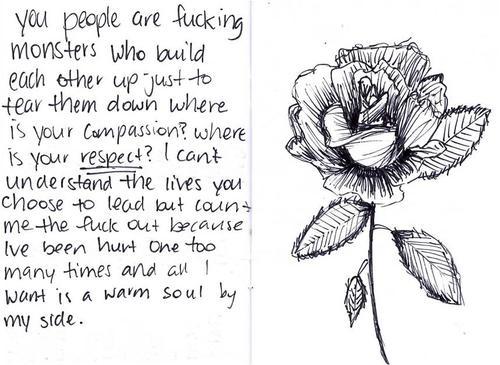 you people are fucking
monsters who build
each other up just to
tear them down where
is your compassion? where
is your respect? I can't
understand the lives you
choose to lead but count
me the fuck out because
I've been hurt one too
many times and all I
want is a warm soul by
my side.